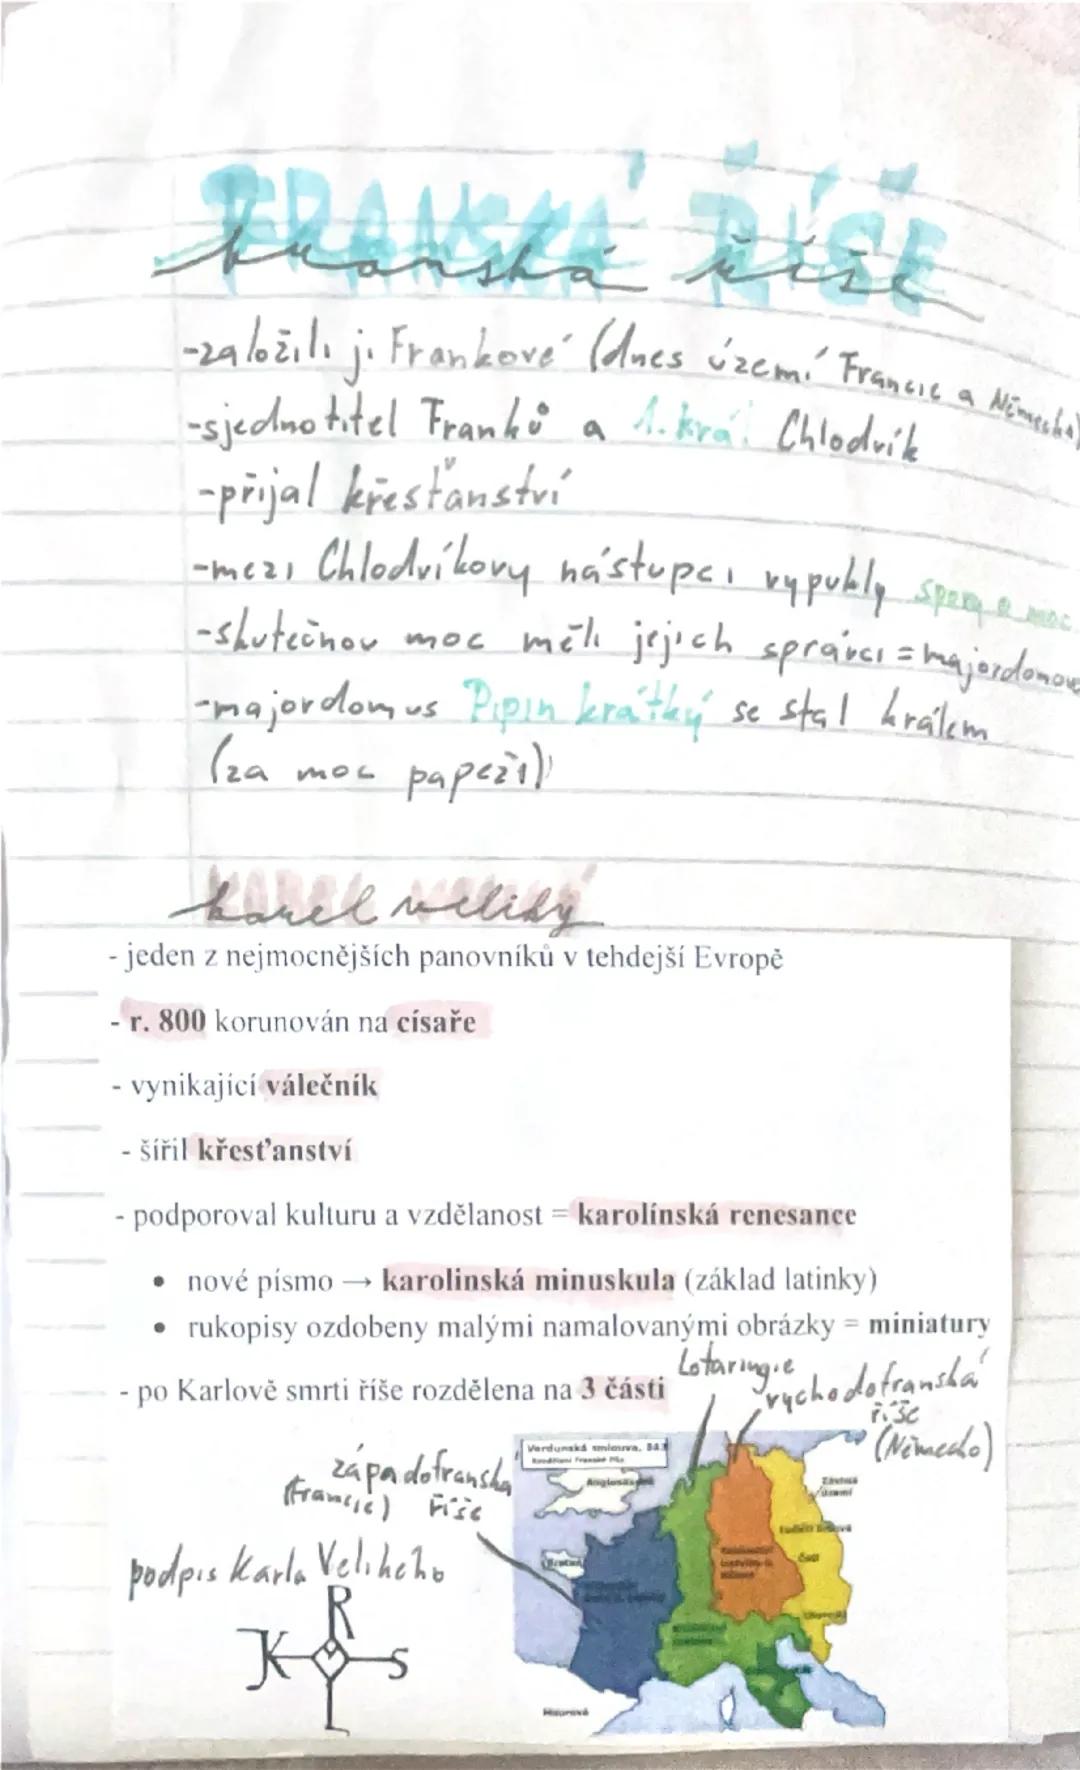 FRANSKÁ ŘÍŠE
franská říše
-založili ji Frankové (dnes území Francie a Německa)
-sjednotitel Franků a 1. král Chlodvík
-přijal křesťanství
-mezi Chlodvíkovy nástupci vypukly spory o moc
-skutečnou moc měli jejich správci = majordomové
-majordomus Pipin krátký se stal králem
(za moc papeži)
KAREL VELIKÝ
karel veliký
- jeden z nejmocnějších panovníků v tehdejší Evropě
- r. 800 korunován na císaře
- vynikající válečník
- šířil křesťanství
- podporoval kulturu a vzdělanost = karolínská renesance
• nové písmo → karolinská minuskula (základ latinky)
• rukopisy ozdobeny malými namalovanými obrázky = miniatury
- po Karlově smrti říše rozdělena na 3 části
Lotaringie
východofranská
říše
(Německo)
západofranská
(Francie) říše
Verdunská smlouva, 843
Bretaň
Maurové
podpis Karla Velikého
R
K S
L